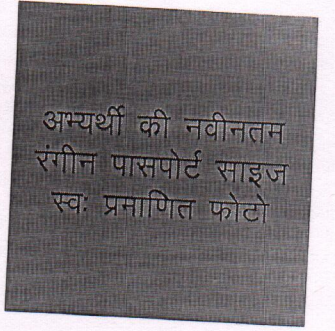 अभ्यर्थी की नवीनतम
रंगीन पासपोर्ट साइज
स्व: प्रमाणित फोटो